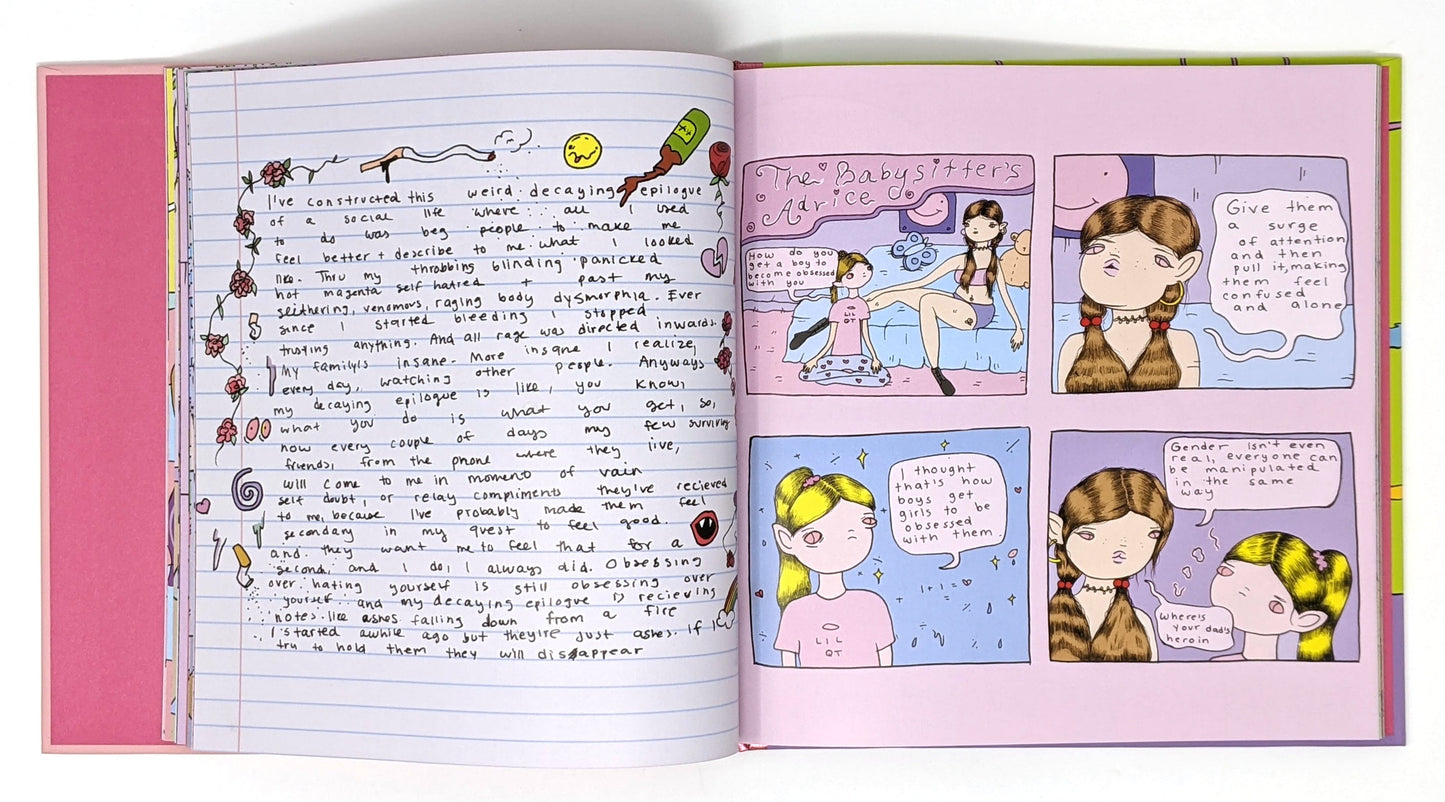 I've constructed this weird decaying epilogue
of a social life where all I used
to do was beg people to make me
feel better + describe to me what I looked
like. Thru my throbbing blinding panicked
hot magenta self hatred + past my
slithering, venomous, raging body dysmorphia. Ever
since I started bleeding I stopped
trusting anything. And all rage was directed inwards.
My family is insane. More insane I realize,
every day, watching other people. Anyways
my decaying epilogue is like, you know,
what you do is what you get, so,
now every couple of days my few surviving
friends, from the phone where they live,
will come to me in moments of vain
self doubt, or relay compliments they've recieved
to me, because I've probably made them feel
secondary in my quest to feel good.
and they want me to feel that for a
second, and I do, I always did. Obsessing
over hating yourself is still obsessing over
yourself. and my decaying epilogue is recieving
notes like ashes falling down from a fire
I started awhile ago but they're just ashes. If I
try to hold them they will disappear
The Babysitter's
Advice
How do you
get a boy to
become obsessed
with you
LIL
QT
Give them
a surge
of attention
and then
pull it, making
them feel
confused
and alone
I thought
that's how
boys get
girls to be
obsessed
with them.
1+1=
LIL
QT
Gender isn't even
real, everyone can
be manipulated
in the same
way
Where's
your dad's
heroin